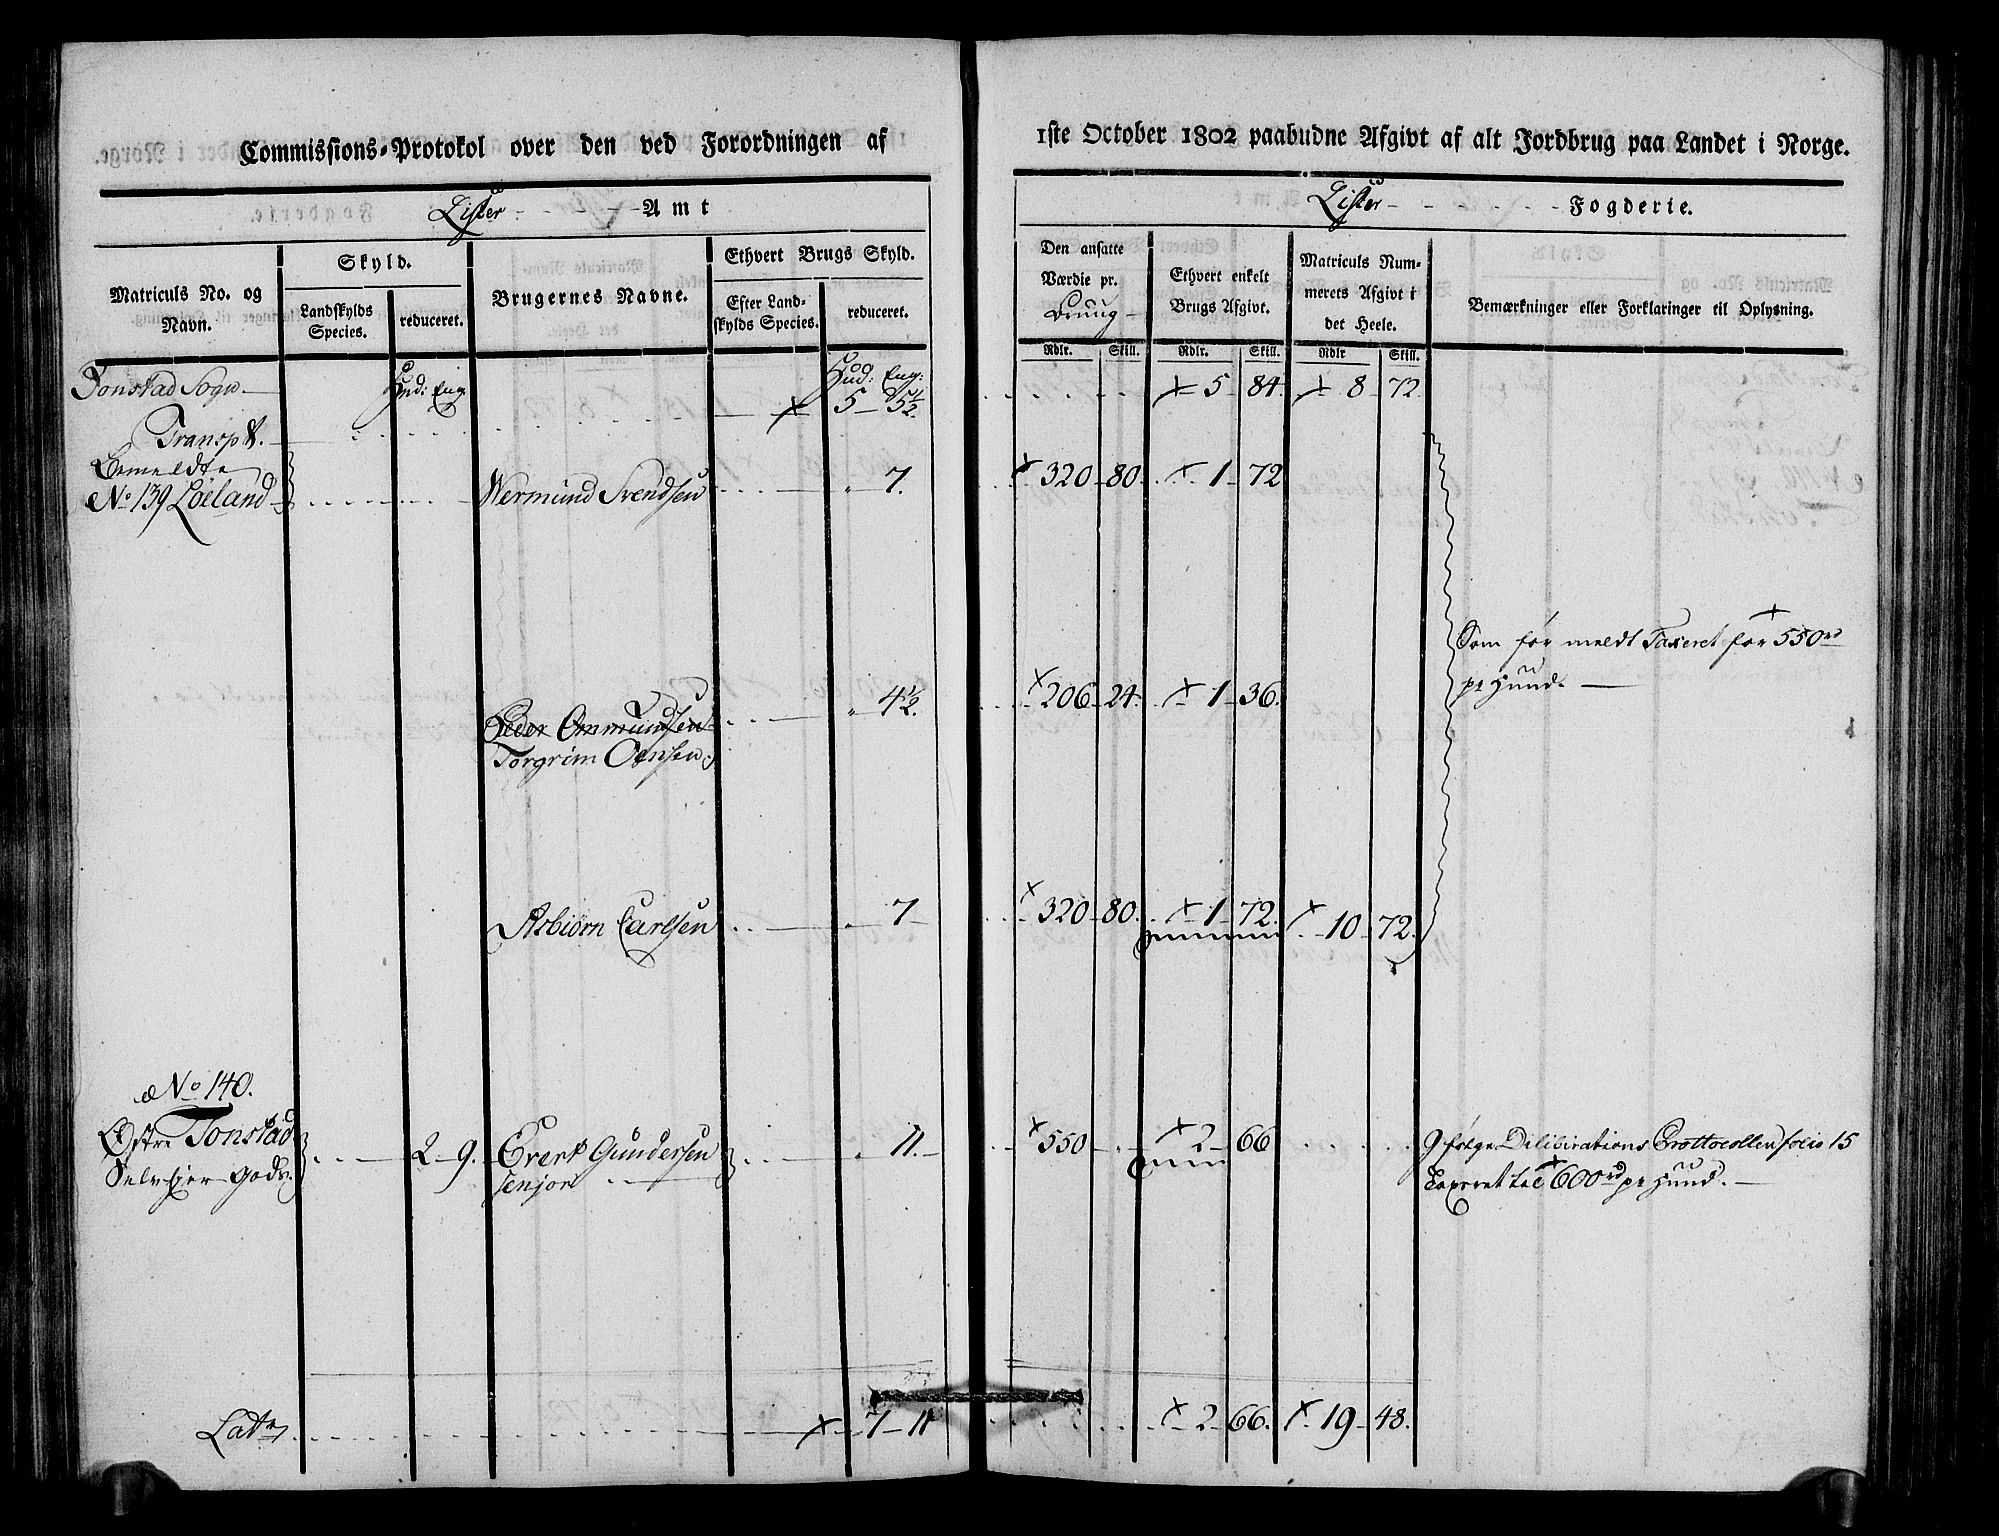 Commissions-Protokol over den ved Forordningen af 1ste October 1802 paabudne Afgivt af alt Jordbrug paa Landet i Norge.
Lister Amt
Lister Fogderie.
Matriculs No. og Navn.
Skyld.
Landskylds Species.
reduceret.
Brugernes Navne.
Ethvert Brugs Skyld.
Efter Landskylds Species.
reduceret.
Den ansatte Værdie pr.
Ethvert enkelt Brugs Afgivt.
Matriculs Nummerets Afgivt i det Heele.
Bemærkninger eller Forklaringer til Oplysning.
Rdlr. Skill. Rdlr. Skill. Rdlr Skill.
Tonstad Sogn
Hud: Eng. Hud: Eng:
Transpt. × 5 5 1/2. × 5 84. × 8 72.
Bemeldte
No 139 Löeland Wermund Svendsen " 7. × 320 80. × 1 72
Som før meldt Taxeret for 550 rd
pr Hund.
Peder Ommundsen " 4 1/2. × 206 24. × 1 36.
Torgrim Oensen
Asbiörn Carlsen " 7 × 320 80. × 1 72. × 10 72.
No 140.
Østre Tonstad 2 9. Evert Gundersen " 11. × 550 × 2 66
Selveyer Gods. senjor
følge Deliberations Prottocollen folio 15
Taxeret til 600 rd pr Hund.
Latr × 7 11 × 2 66. × 19 48.